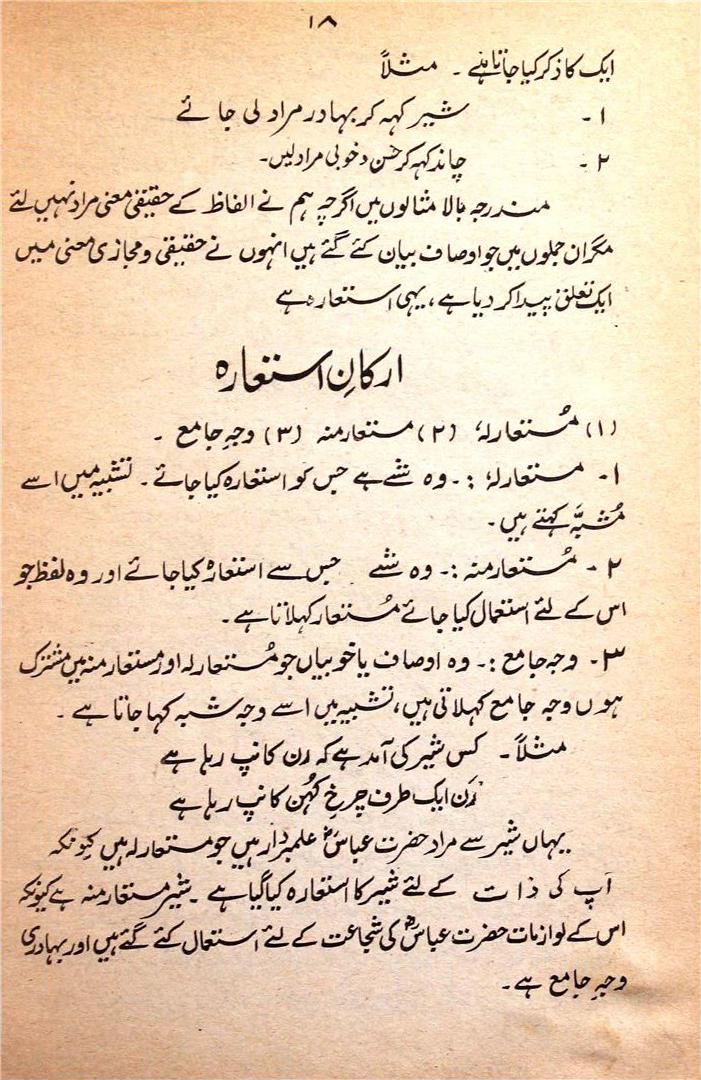 ۱۸
ایک کا ذکر کیا جاتا ہے ۔ مثلاً
۱ ۔ شیر کہہ کر بہادر مراد لی جائے
۲ ۔ چاند کہہ کر حُسن و خوبی مراد لیں۔
مندرجہ بالا مثالوں میں اگرچہ ہم نے الفاظ کے حقیقی معنی مراد نہیں لئے
مگر ان جملوں میں جو اوصاف بیان کئے گئے ہیں انہوں نے حقیقی و مجازی معنی میں
ایک تعلق پیدا کر دیا ہے ، یہی استعارہ ہے
ارکانِ استعارہ
(۱) مُستعار لہٗ (۲) مستعار منہ (۳) وجہِ جامع ۔
۱۔ مستعار لہٗ :۔ وہ شے ہے جس کو استعارہ کیا جائے ۔ تشبیہ میں اسے
مُشبَّہ کہتے ہیں ۔
۲ ۔ مُستعار منہ :۔ وہ شے جس سے استعارہ کیا جائے اور وہ لفظ جو
اس کے لئے استعمال کیا جائے مُستعار کہلاتا ہے ۔
۳۔ وجہ جامع :۔ وہ اوصاف یا خوبیاں جو مُستعار لہ اور مستعار منہ میں مشترک
ہوں وجہ جامع کہلاتی ہیں ، تشبیہ میں اسے وجہ شبہ کہا جاتا ہے ۔
مثلاً ۔ کس شیر کی آمد ہے کہ رَن کانپ رہا ہے
رَن ایک طرف چرخِ کُہن کانپ رہا ہے
یہاں شیر سے مراد حضرت عباسؓ علمبردار ہیں جو مستعار لہ ہیں کیونکہ
آپ کی ذات کے لئے شیر کا استعارہ کیا گیا ہے ۔ شیر مستعار منہ ہے کیونکہ
اس کے لوازمات حضرت عباسؓ کی شجاعت کے لئے استعمال کئے گئے ہیں اور بہادری
وجہِ جامع ہے ۔